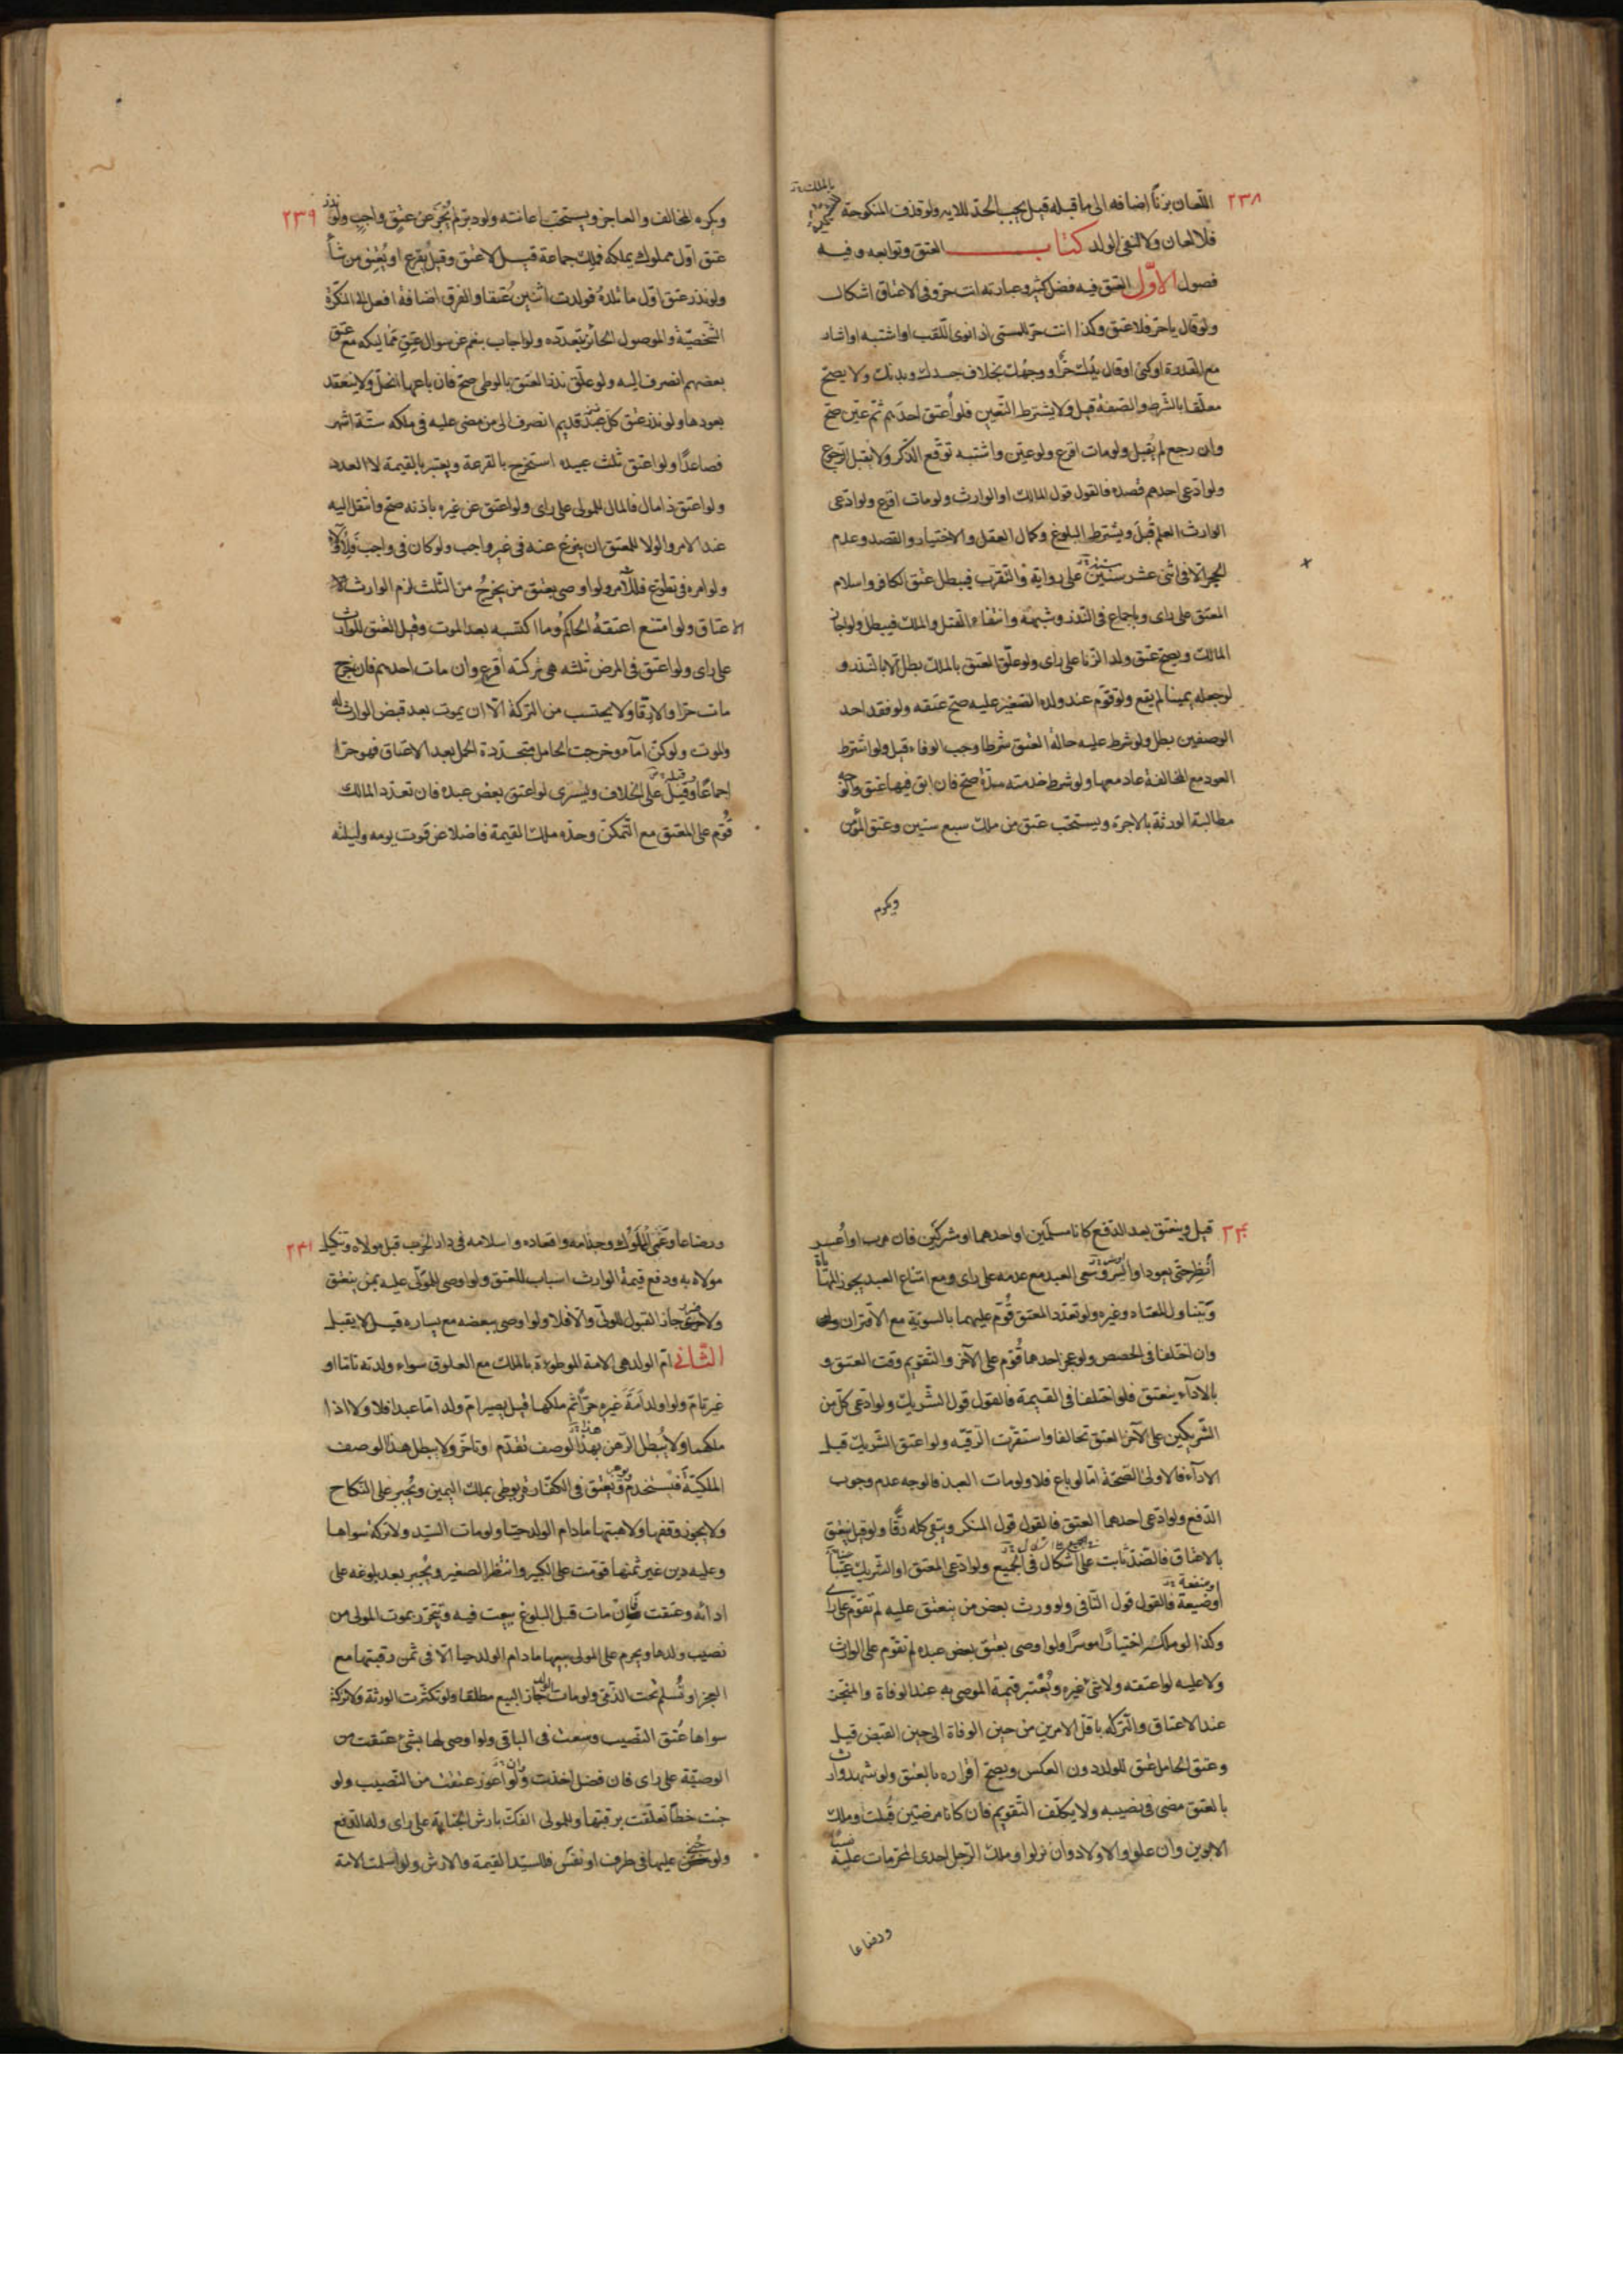 ٢٣٨
اللّعان بزناً اضافه الى ما قبله قيل يجب الحدّ للايه ولو قذف المنكوحة
بالملك
فلا لعان ولا النفى الولد كتاب العتق وتوابعه وفيه
فصول الاوّل العتق فيه فضل كثير وعبارته انت حرّ وفى الاعتاق اشكال
ولو قال يا حرّ فلا عتق وكذا انت حرّ للمسمّى اذا نوى اللّقب او اشتبه او اشار
مع القدرة او كنى او قال يدك حرّ او وجهك بخلاف جسدك وبدنك ولا يصحّ
معلّقا بالشّرط والصّفة قيل ولا يشترط التّعيين فلو اعتق احدهم ثمّ عيّن صحّ
وان رجع لم يقبل ولو مات اقرع ولو عيّن واشتبه توقّع الذّكر ولا يقبل الرجوع
ولو ادّعى احدهم قصده فالقول قول المالك او الوارث ولو مات اقرع ولو ادّعى
الوارث العلم قبل ويشترط البلوغ وكمال العقل والاختيار والقصد وعدم
الحجر الا فى اثنى عشر سنين على رواية والتقرّب فيبطل عتق الكافر واسلام
المعتق على راى وباجماع فى النذر وشبهه وانتفاء القتل والملك فيبطل ولو اجاز
المالك ويصحّ عتق ولد الزنا على راى ولو علّق العتق بالملك بطل الا بالنذر و
لو جعله يمينا لم يقع ولو قوّم عند ولده الصّغير عليه صحّ عتقه ولو فقد احد
الوصفين بطل ولو شرط عليه حالة العتق شرطا وجب الوفاء قيل ولو اشترط
العود مع المخالفة عاد معها ولو شرط خدمته مدّة صحّ فان ابق فيها عتق والوجه
مطالبة الورثة بالاجرة ويستحب عتق من ملك سبع سنين وعتق المؤمن
ويكره
٢٣٩
ويكره المخالف والعاجز ويستحبّ اعانته ولو دبّر لم يُجْزِ عن عتق واجب ولو نذر
عتق اوّل مملوك يملكه فملك جماعة قيل لا عتق وقيل يُقرع او يُعتق من شاء
ولو نذر عتق اوّل ما تلده فولدت اثنين عُتقا والفرق اضافة افعل الى النكرة
الشّخصيّة والموصول الحائز بتعدّده ولو اجاب بنعم عن سوال عتق مماليكه مع عتق
بعضهم انصرف اليه ولو علّق نذر العتق بالوطى صحّ فان باعها انحلّ ولا ينعقد
بعودها ولو نذر عتق كلّ عبد قديم انصرف الى من مضى عليه فى ملكه ستّة اشهر
فصاعدًا ولو اعتق ثلث عبيده استخرج بالقرعة ويعتبر بالقيمة لا العدد
ولو اعتق ذا مال فالمال للمولى على راى ولو اعتق عن غيره باذنه صحّ وانتقل اليه
عند الامر والولا للمعتق ان تبرّع عنه فى غير واجب ولو كان فى واجب فلا ولآء
ولو امره فى تطوّع فللآمر ولو اوصى بعتق من يخرج من الثّلث لزم الوارث
الاعتاق ولو امتنع اعتقهُ الحاكم وما اكتسبه بعد الموت وقبل العتق للوارث
على راى ولو اعتق فى المرض ثلثه هى تركته اقرع وان مات احدهم فان خرج
مات حرّا والا رقّا ولا يحتسب من التركة الّا ان يموت بعد قبض الوارث له
والموت ولو كنّ اماء وخرجت الحامل متجدّدة الحمل بعد الاعتاق فهو حرّا
اجماعًا وقيل على الخلاف ويسرى لو اعتق بعض عبده فان تعدّد المالك
قُوّم على المعتق مع التّمكن وحدّه ملك القيمة فاضلا عن قوت يومه وليلته
٢٤٠
قيل وينعتق بعد الدّفع كانا مسلمين او احدهما او مشركين فان هرب او اعسر
اُنظر حتى يعود او ايسر وسعى العبد مع عدمه على راى ومع امتناع العبد يجوز المهاياة
وتتناول المعتاد وغيره ولو تعدّد المعتق قُوّم عليهما بالسويّة مع الاقتران
وان اختلفا فى الحصص ولو عجز احدهما قُوّم على الآخر والتّقويم وقت العتق و
بالاداء ينعتق فلو اختلفا فى القيمة فالقول قول الشّريك ولو ادّعى كلّ من
الشّريكين على الآخر العتق تحالفا واستقرّت الرقّيه ولو اعتق الشّريك قبل
الاداء فالاولى الصّحّة امّا لو باع فلا ولو مات العبد فالوجه عدم وجوب
الدّفع ولو ادّعى احدهما العتق فالقول قول المنكر ويبقى كله رقًّا ولو قيل ينعتق
بالاعتاق فالضّد ثابت على اشكال فى الجميع ولو ادّعى المعتق او الشّريك عيبًا
او ضيعة فالقول قول النّافى ولو ورث بعض من ينعتق عليه لم تقوّم على راى
وكذا لو ملكه اختيارًا موسرًا ولو اوصى بعتق بعض عبده لم تقوّم على الوارث
ولا عليه لو اعتقه ولا شئ غيره ويُعتبر قيمة الموصى به عند الوفاة والمنجّز
عند الاعتاق والتركه باقلّ الامرين من حين الوفاة الى حين القبض قيل
وعتق الحامل عتق للولد دون العكس ويصحّ اقراره بالعتق ولو شهد وارث
بالعتق مضى فى نصيبه ولا يكلّف التّقويم فان كانا مرضيّين قُبلت وملك
الابوين وان علوا والاولاد وان نزلوا وملك الرّجل احدى المحرّمات عليه نسبًا
ورضاعا
٢٤١
ورضاعا وعَمَى المملوك وجذامه واقعاده واسلامه فى دار الحرب قبل مولاه وتنكيل
مولاه به ودفع قيمة الوارث اسباب للعتق ولو اوصى للمولّى عليه بمن ينعتق
ولا ضرر جاز القبول للولىّ والّا فلا ولو اوصى ببعضه مع يساره قيل لا يقبل
الثّانى امّ الولد هى الامة الموطوءة بالملك مع العلوق سواء ولدته تاما او
غير تامّ ولو اولد اَمَةَ غيره حرًّا ثم ملكها قيل يصير امّ ولد امّا عبدا فلا ولا اذا
ملكهما ولا يُبطل الرّهن بهذا الوصف تقدّم او تأخّر ولا يبطل هذا الوصف
الملكيّة فيستخدم ويُعتق فى الكفّارة ويوطى بملك اليمين ويُجبر على النّكاح
ولا يجوز وقفها ولا هبتها ما دام الولد حيّا ولو مات السّيّد ولا تركة سواها
وعليه دين غير ثمنها قوّمت على الكبير وانتظر الصغير ويُجبر بعد بلوغه على
ادائه وعتقت فان مات قبل البلوغ بيعت فيه وتتحرّر بموت المولى من
نصيب ولدها ويحرم على المولى بيعها ما دام الولد حيا الّا فى ثمن رقبتها مع
العجز او تُسلم تحت الذّمّى ولو مات الولد جاز البيع مطلقا ولو تكثّرت الورثة ولا تركة
سواها عُتق النّصيب وسعت فى الباقى ولو اوصى لها بشئ عتقت من
الوصيّة على راى فان فضل اخذت ولو اعوز عتقت من النّصيب ولو
جنت خطاً تعلّقت برقبتها وللمولى الفكّ بارش الجناية على راى وله الدّفع
ولو جُنى عليها فى طرف او نفس فللسيّد القيمة والارش ولو اسلمت الامة